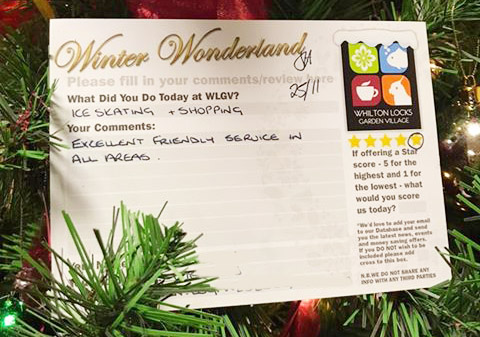 Winter Wonderland
Please fill in your comments/review here
25/11
What Did You Do Today at WLGV?
ICE SKATING + SHOPPING
Your Comments:
EXCELLENT FRIENDLY SERVICE IN
ALL AREAS.
WHILTON LOCKS
GARDEN VILLAGE
If offering a Star
score - 5 for the
highest and 1 for
the lowest - what
would you score
us today?
*We'd love to add your email
to our Database and send
you the latest news, events
and money saving offers.
If you DO NOT wish to be
included please add
cross to this box.
N.B.WE DO NOT SHARE ANY
INFO WITH ANY THIRD PARTIES